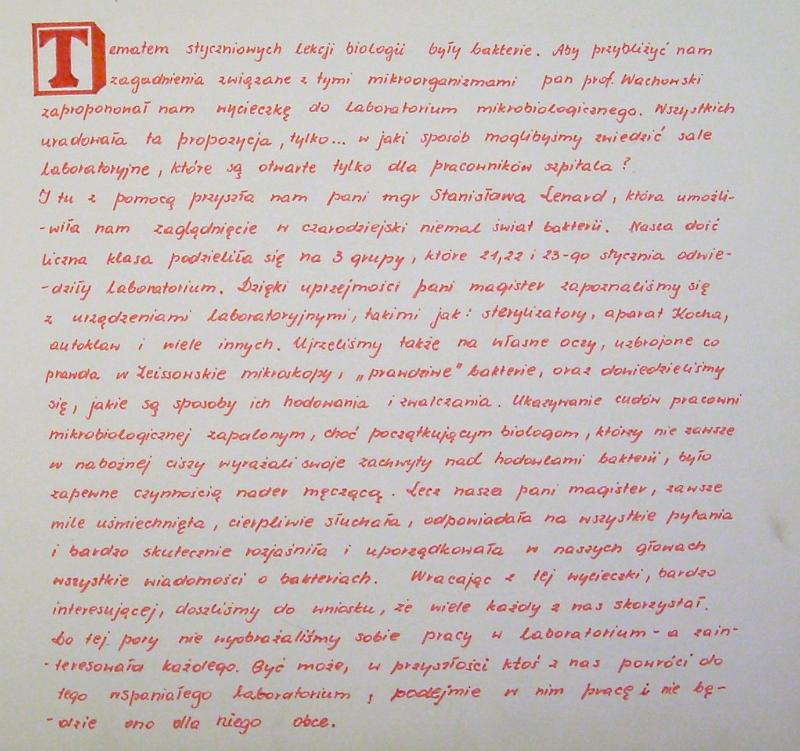 Tematem styczniowych lekcji biologii były bakterie. Aby przybliżyć nam
zagadnienia związane z tymi mikroorganizmami pan prof. Wachowski
zaproponował nam wycieczkę do laboratorium mikrobiologicznego. Wszystkich
uradowała ta propozycja, tylko... w jaki sposób moglibyśmy zwiedzić sale
laboratoryjne, które są otwarte tylko dla pracowników szpitala?
I tu z pomocą przyszła nam pani mgr Stanisława Lenard, która umożli-
-wiła nam zaglądnięcie w czarodziejski niemal świat bakterii. Nasza dość
liczna klasa podzieliła się na 3 grupy, które 21,22 i 23-go stycznia odwie-
-dziły laboratorium. Dzięki uprzejmości pani magister zapoznaliśmy się
z urządzeniami laboratoryjnymi, takimi jak: sterylizatory, aparat Kocha,
autoklaw i wiele innych. Ujrzeliśmy także na własne oczy, uzbrojone co
prawda w Zeissowskie mikroskopy, „prawdziwe" bakterie, oraz dowiedzieliśmy
się, jakie są sposoby ich hodowania i zwalczania. Ukazywanie cudów pracowni
mikrobiologicznej zapalonym, choć początkującym biologom, którzy nie zawsze
w nabożnej ciszy wyrażali swoje zachwyty nad hodowlami bakterii, było
zapewne czynnością nader męczącą. Lecz nasza pani magister, zawsze
mile uśmiechnięta, cierpliwie słuchała, odpowiadała na wszystkie pytania
i bardzo skutecznie rozjaśniła i uporządkowała w naszych głowach
wszystkie wiadomości o bakteriach. Wracając z tej wycieczki, bardzo
interesującej, doszliśmy do wniosku, że wiele każdy z nas skorzystał.
Do tej pory nie wyobrażaliśmy sobie pracy w laboratorium - a zain-
-teresowała każdego. Być może, w przyszłości ktoś z nas powróci do
tego wspaniałego laboratorium, podejmie w nim pracę i nie bę-
-dzie ono dla niego obce.